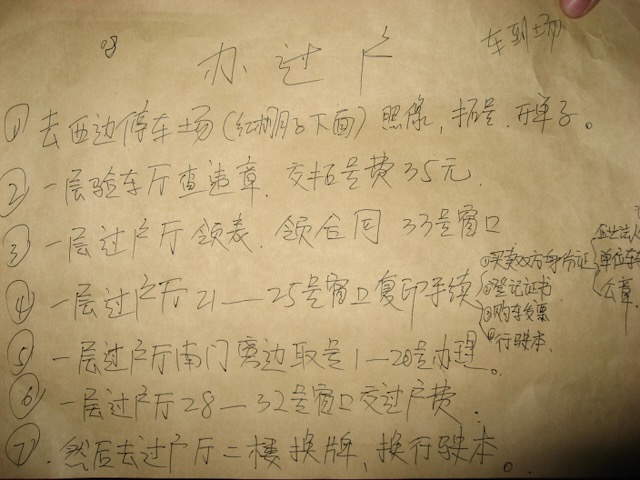 08
办过户
车到场
①去西边停车场(红棚子下面)照像,拓号.开单子。
②一层验车厅查违章.交拓号费35元.
③一层过户厅领表.领合同 33号窗口
④一层过户厅21—25号窗口复印手续
①买卖双方身份证
②登记证书
③购车发票
④行驶本.
企业法人
单位车
公章.
⑤一层过户厅南门旁边取号1—20号办理。
⑥一层过户厅28—32号窗口交过户费.
⑦.然后去过户厅二楼换牌、换行驶本。